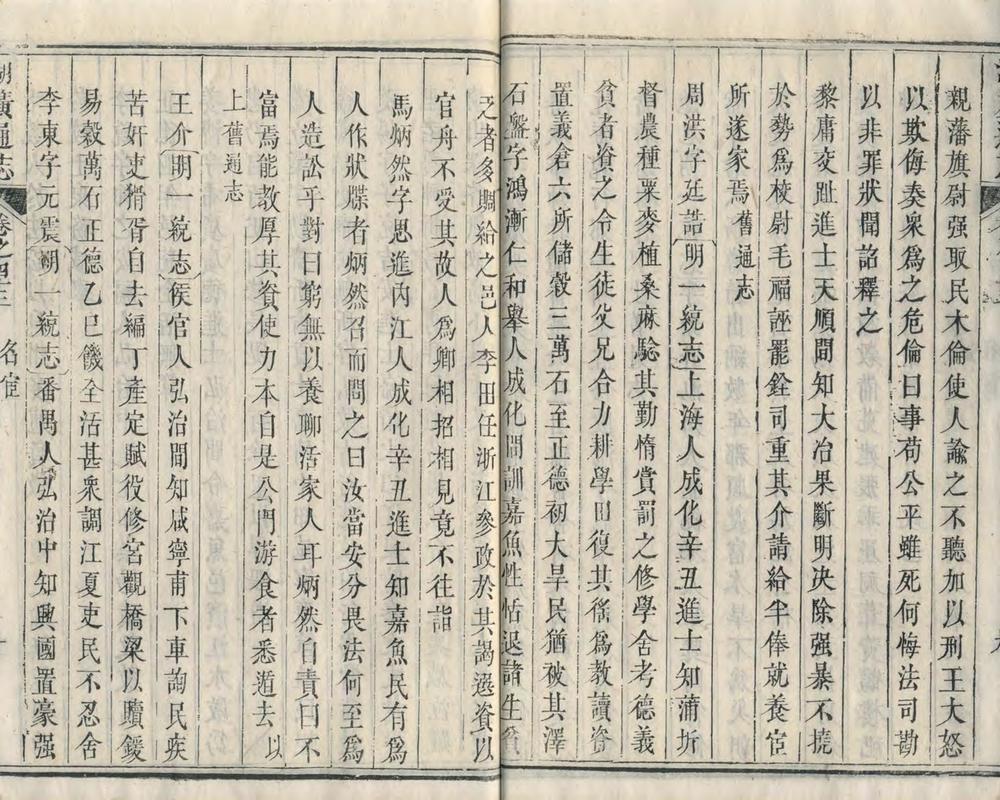 親藩旗尉强取民木倫使人諭之不聽加以刑王大怒
以欺侮奏衆爲之危倫曰事苟公平雖死何悔法司勘
以非罪狀聞詔釋之
黎庸交趾進士天順間知大冶果斷明決除强暴不撓
於勢爲校尉毛福誣罷銓司重其介請給半俸就養宦
所遂家焉舊通志
周洪字廷誥〔明一統志〕上海人成化辛丑進士知蒲圻
督農種粟麥植桑麻騐其勤惰賞罰之修學舍考德義
貧者資之令生徒父兄合力耕學田復其徭爲教讀資
置義倉六所儲穀三萬石至正德初大旱民猶被其澤
石盤字鴻漸仁和舉人成化間訓嘉魚性恬退諸生貧
乏者多賙給之邑人李田任浙江參政於其謁選資以
官舟不受其故人爲鄉相招相見竟不往詣
馬炳然字思進內江人成化辛丑進士知嘉魚民有爲
人作狀牒者炳然召而問之曰汝當安分畏法何至爲
人造訟乎對曰窮無以養聊活家人耳炳然自責曰不
富焉能教厚其資使力本自是公門游食者悉遁去以
上舊通志
王介〔明一統志〕侯官人弘治間知咸寧甫下車詢民疾
苦奸吏猾胥自去編丁產定賦役修宮觀橋梁以贖鍰
易穀萬石正德乙巳饑全活甚衆調江夏吏民不忍舍
李東字元震〔明一統志〕番禺人弘治中知興國置豪强
湖廣通志 卷之四十三 名宦